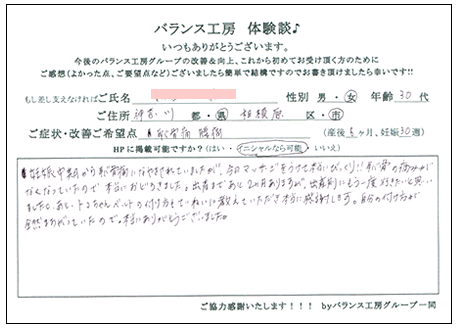 バランス工房 体験談♪
いつもありがとうございます。
今後のバランス工房グループの改善&向上、これから初めてお受け頂く方のために
ご感想(よかった点、ご要望点など)ございましたら簡単で結構ですのでお書き頂けましたら幸いです!!
もし差し支えなければご氏名 性別 男・女 年齢 30 代
ご住所 神奈川 都・県 相模原 区・市
ご症状・改善ご希望点 恥骨痛 腰痛 (産後 ヶ月、妊娠 30週)
HPに掲載可能ですか?(はい・イニシャルなら可能・いいえ)
妊娠中期から恥骨痛になやまされていましたが、今日マッサージをうけて本当にびっくり!!恥骨の痛みが
なくなっていたので本当におどろきました。出産まであと2ヶ月ありますが、出産前にもう一度行きたいと思い
ました。あと、トコちゃんベルトの付け方もていねいに教えていただき本当に感謝します。自分の付け方が
全然まちがっていたので。本当にありがとうございました。
ご協力感謝いたします!!! byバランス工房グループ一同